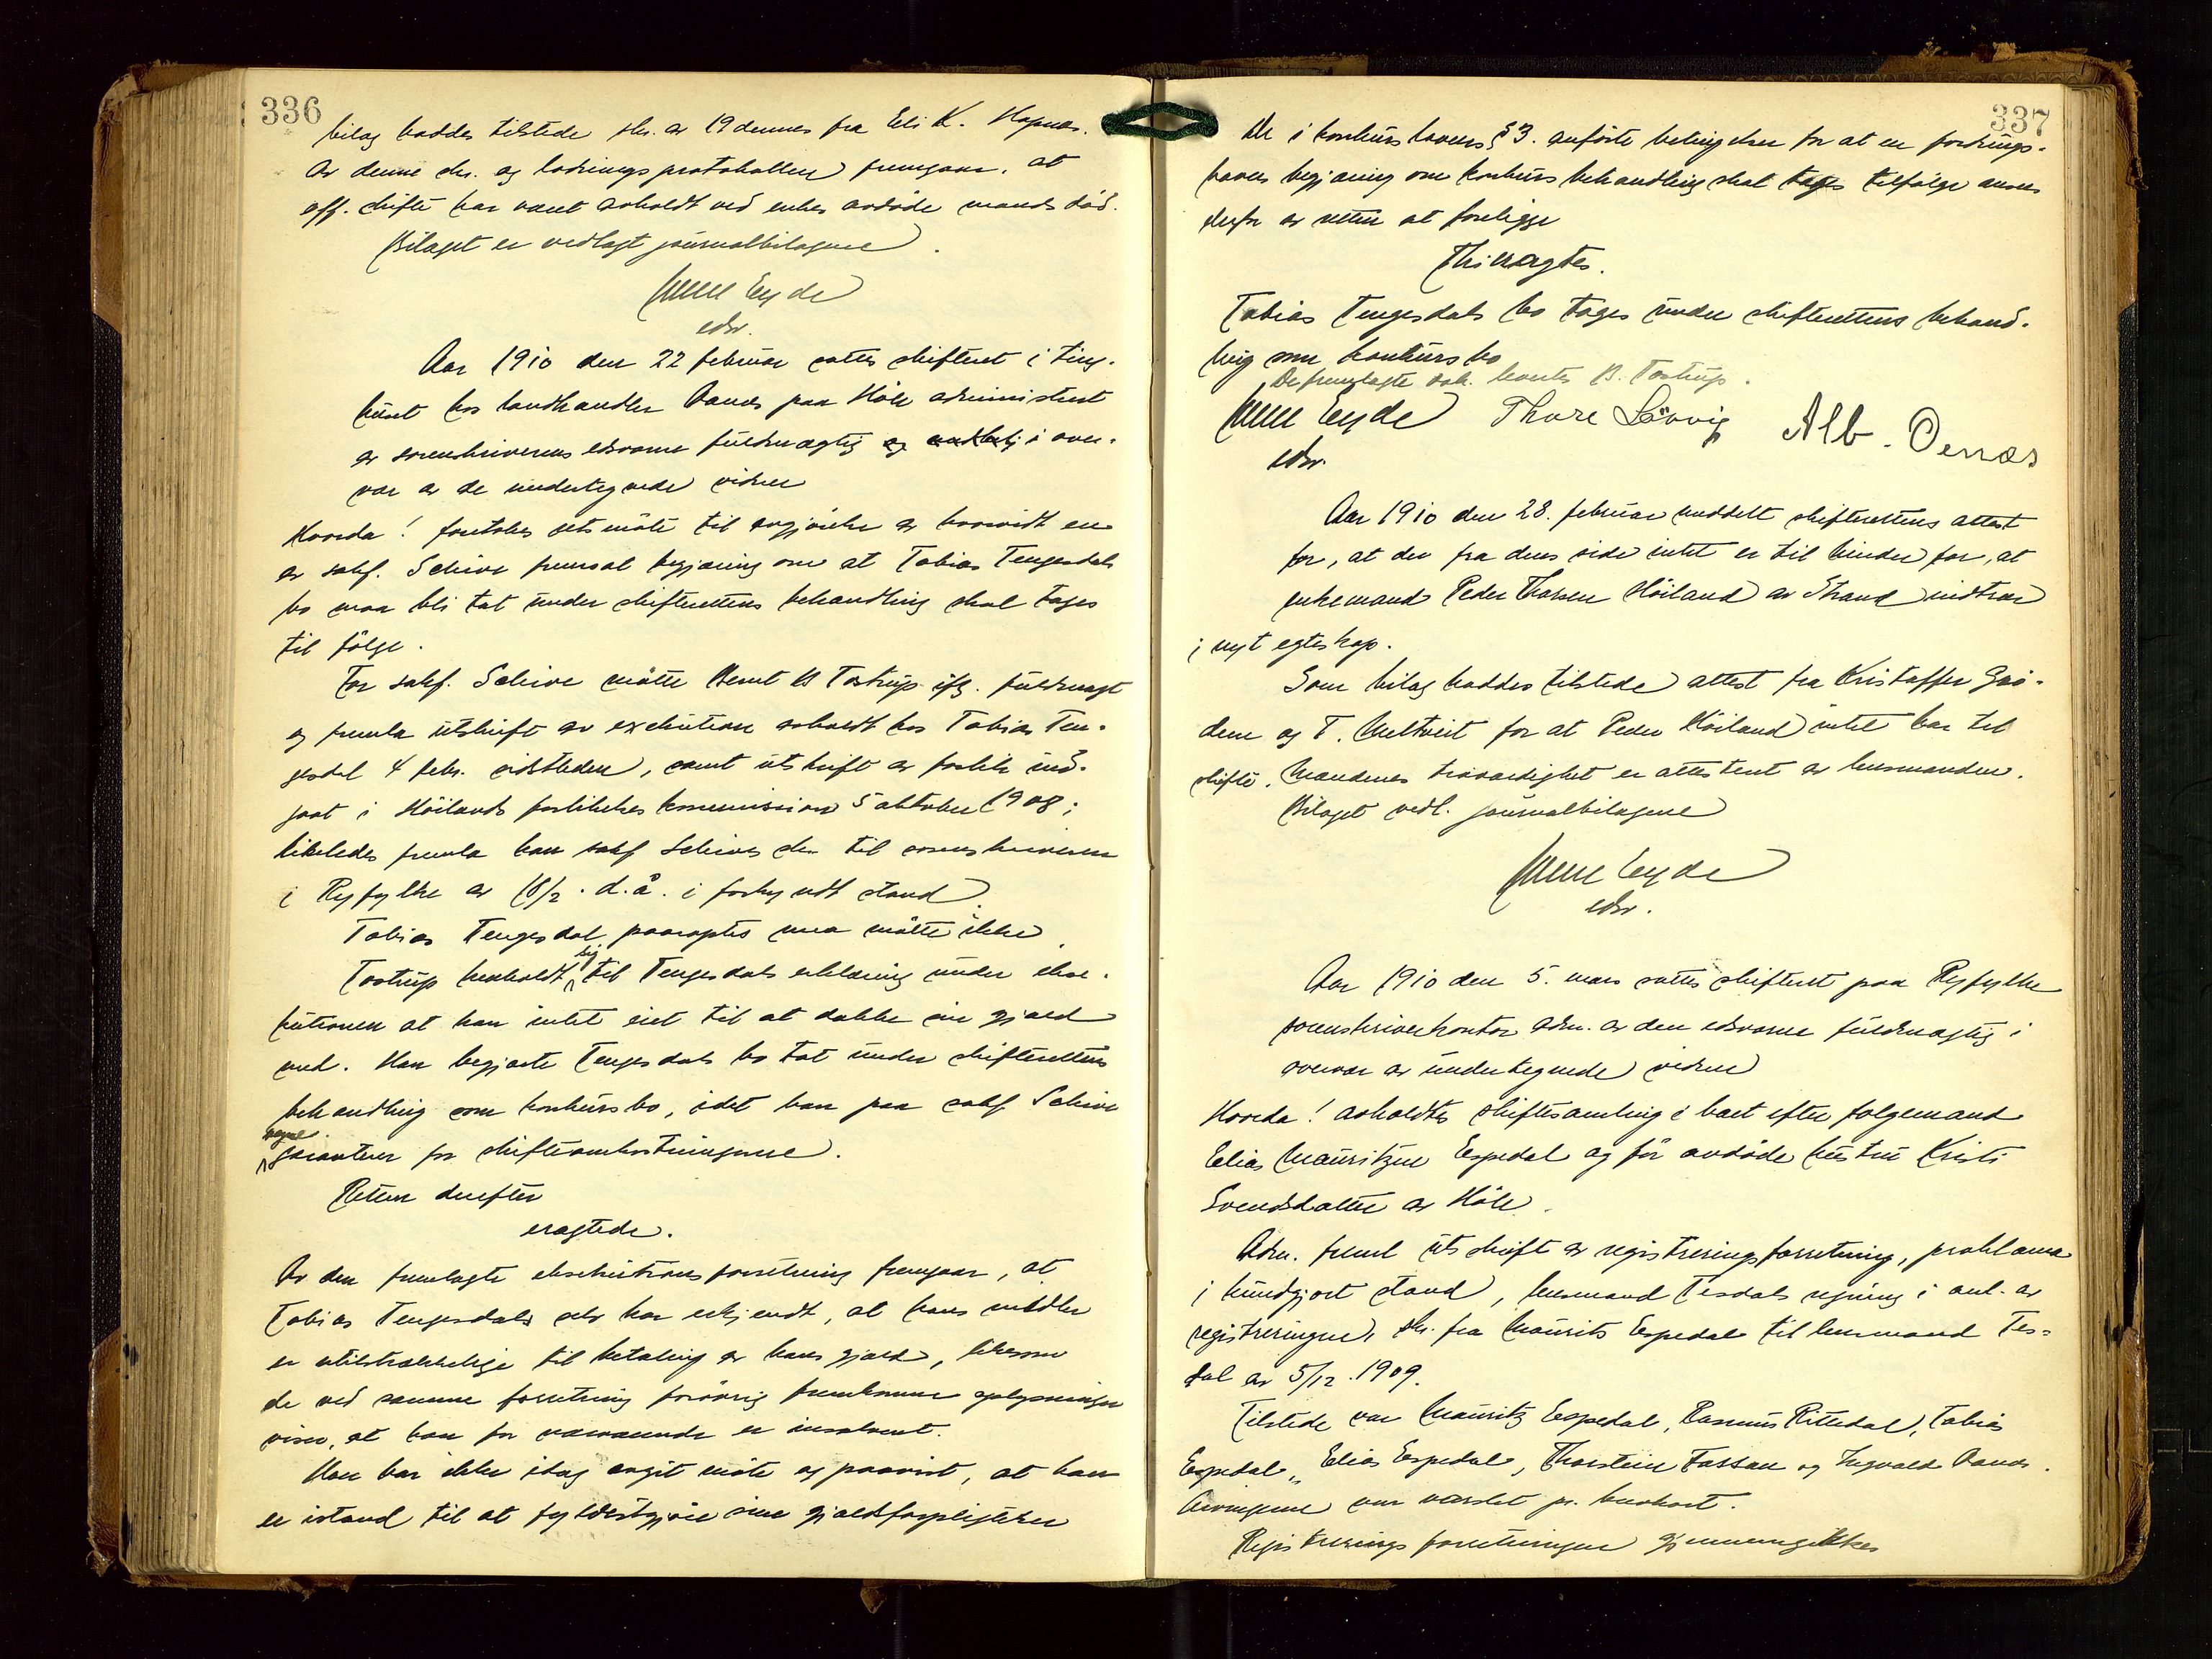 336
bilag haddes tilstede skr. av 19 dennes fra Eli K. Hapnes.
Av denne skr. og lodningsprotokollen fremgaar, at
off. skifte har været avholdt ved enkes avdøde mands död.
Bilaget er vedlagt journalbilagene.
Eyde
edsv.
Aar 1910 den 22 februar sattes skifteret i ting-
huset hos landhandler Aanes paa Höle administrert
av sorenskriverens edsvorne fuldmægtig i over-
vær av de undertegnede vidner
Hvorda! foretokes retsmöte til avgjörelse av hvorvidt en
av sakf. Schive fremsat begjæring om at Tobias Tengesdals
bo maa bli tat under skifterettens behandling skal tages
til fölge.
For sakf. Schive mötte Bernt B Tostrup ifg. fuldmagt
og fremla utskrift av exekution avholdt hos Tobias Ten-
gesdal 4 febr. sidstleden, samt utskrift av forlik ind-
gaat i Höilands forlikelseskommission 5 oktober 1908;
likeledes fremla han sakf Schives skr. til sorenskriveren
i Ryfylke av 18/2. d.å. i forkyndt stand.
Tobias Tengesdal paaroptes men mötte ikke.
Tostrup henholdt sig til Tengesdals erklæring under ekse-
kutionen at han intet eiet til at dække sin gjæld
med. Han begjærte Tengesdals bo tat under skifterettens
behandling som konkursbo, idet han paa sakf Schives
vegne garanterer for skifteomkostningerne.
Retten derefter
eragtede.
Av den fremlagte eksekutionsforretning fremgaar, at
Tobias Tengesdal selv har erkjendt, at hans midler
er utilstrækkelige til betaling av hans gjæld, likesom
de ved samme forretning forövrig fremkomne oplysninger
viser, at han for nærværende er insolvent.
Han har ikke idag avgit möte og paavist, at han
er istand til at fyldestgjöre sine gjældsforpligtelser
337
De i konkurslovens § 3. anförte betingelser for at en fordrings-
havers begjæring om konkursbehandling skal tages tilfölge ansees
derfor av retten at foreligge
Thi eragtes.
Tobias Tengesdals bo tages under skifterettens behand-
ling som konkursbo
De fremlagte dok. leverts B. Tostrup.
Eyde Thore Lövvig Alb. Oenæs
edsv.
Aar 1910 den 28. februar meddelt skifterettens attest
for, at der fra dens side intet er til hinder for, at
enkemand Peder Höiland av Strand indtrær
i nyt egteskap.
Som bilag haddes tilstede attest fra Kristoffer Grö-
dem og T. Meltveit for at Peder Höiland intet har til
skifte. Mændenes troværdighet er attestert av lensmanden.
Bilaget vedl. journalbilagene
Eyde
edsv.
Aar 1910 den 5. mars sattes skifteret paa Ryfylke
sorenskriverkontor adm. av den edsvorne fuldmægtig i
overvær av undertegnede vidner
Hvorda! avholdtes skiftesamling i boet efter folgemand
Elias Mauritzen Espedal og før avdöde hustru Kristi
Svendsdatter av Höle.
Adm. freml utskrift av registreringsforretning, proklama
i kundgjort stand, lensmand Tesdals regning i anl. av
registreringen, skr. fra Maurits Espedal til lensmand Tes-
dal av 5/12. 1909.
Tilstede var Mauritz Espedal, Rasmus Rettedal, Tobias
Espedal, Elias Espedal, Thorstein Fossan og Ingvald Aanes.
Arvingene var varslet pr. brevkort.
Registreringsforretningen gjennemgikkes